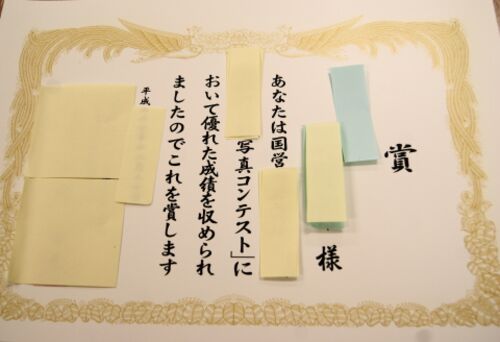 賞
様
あなたは国営
写真コンテスト」に
おいて優れた成績を収められ
ましたのでこれを賞します
平成